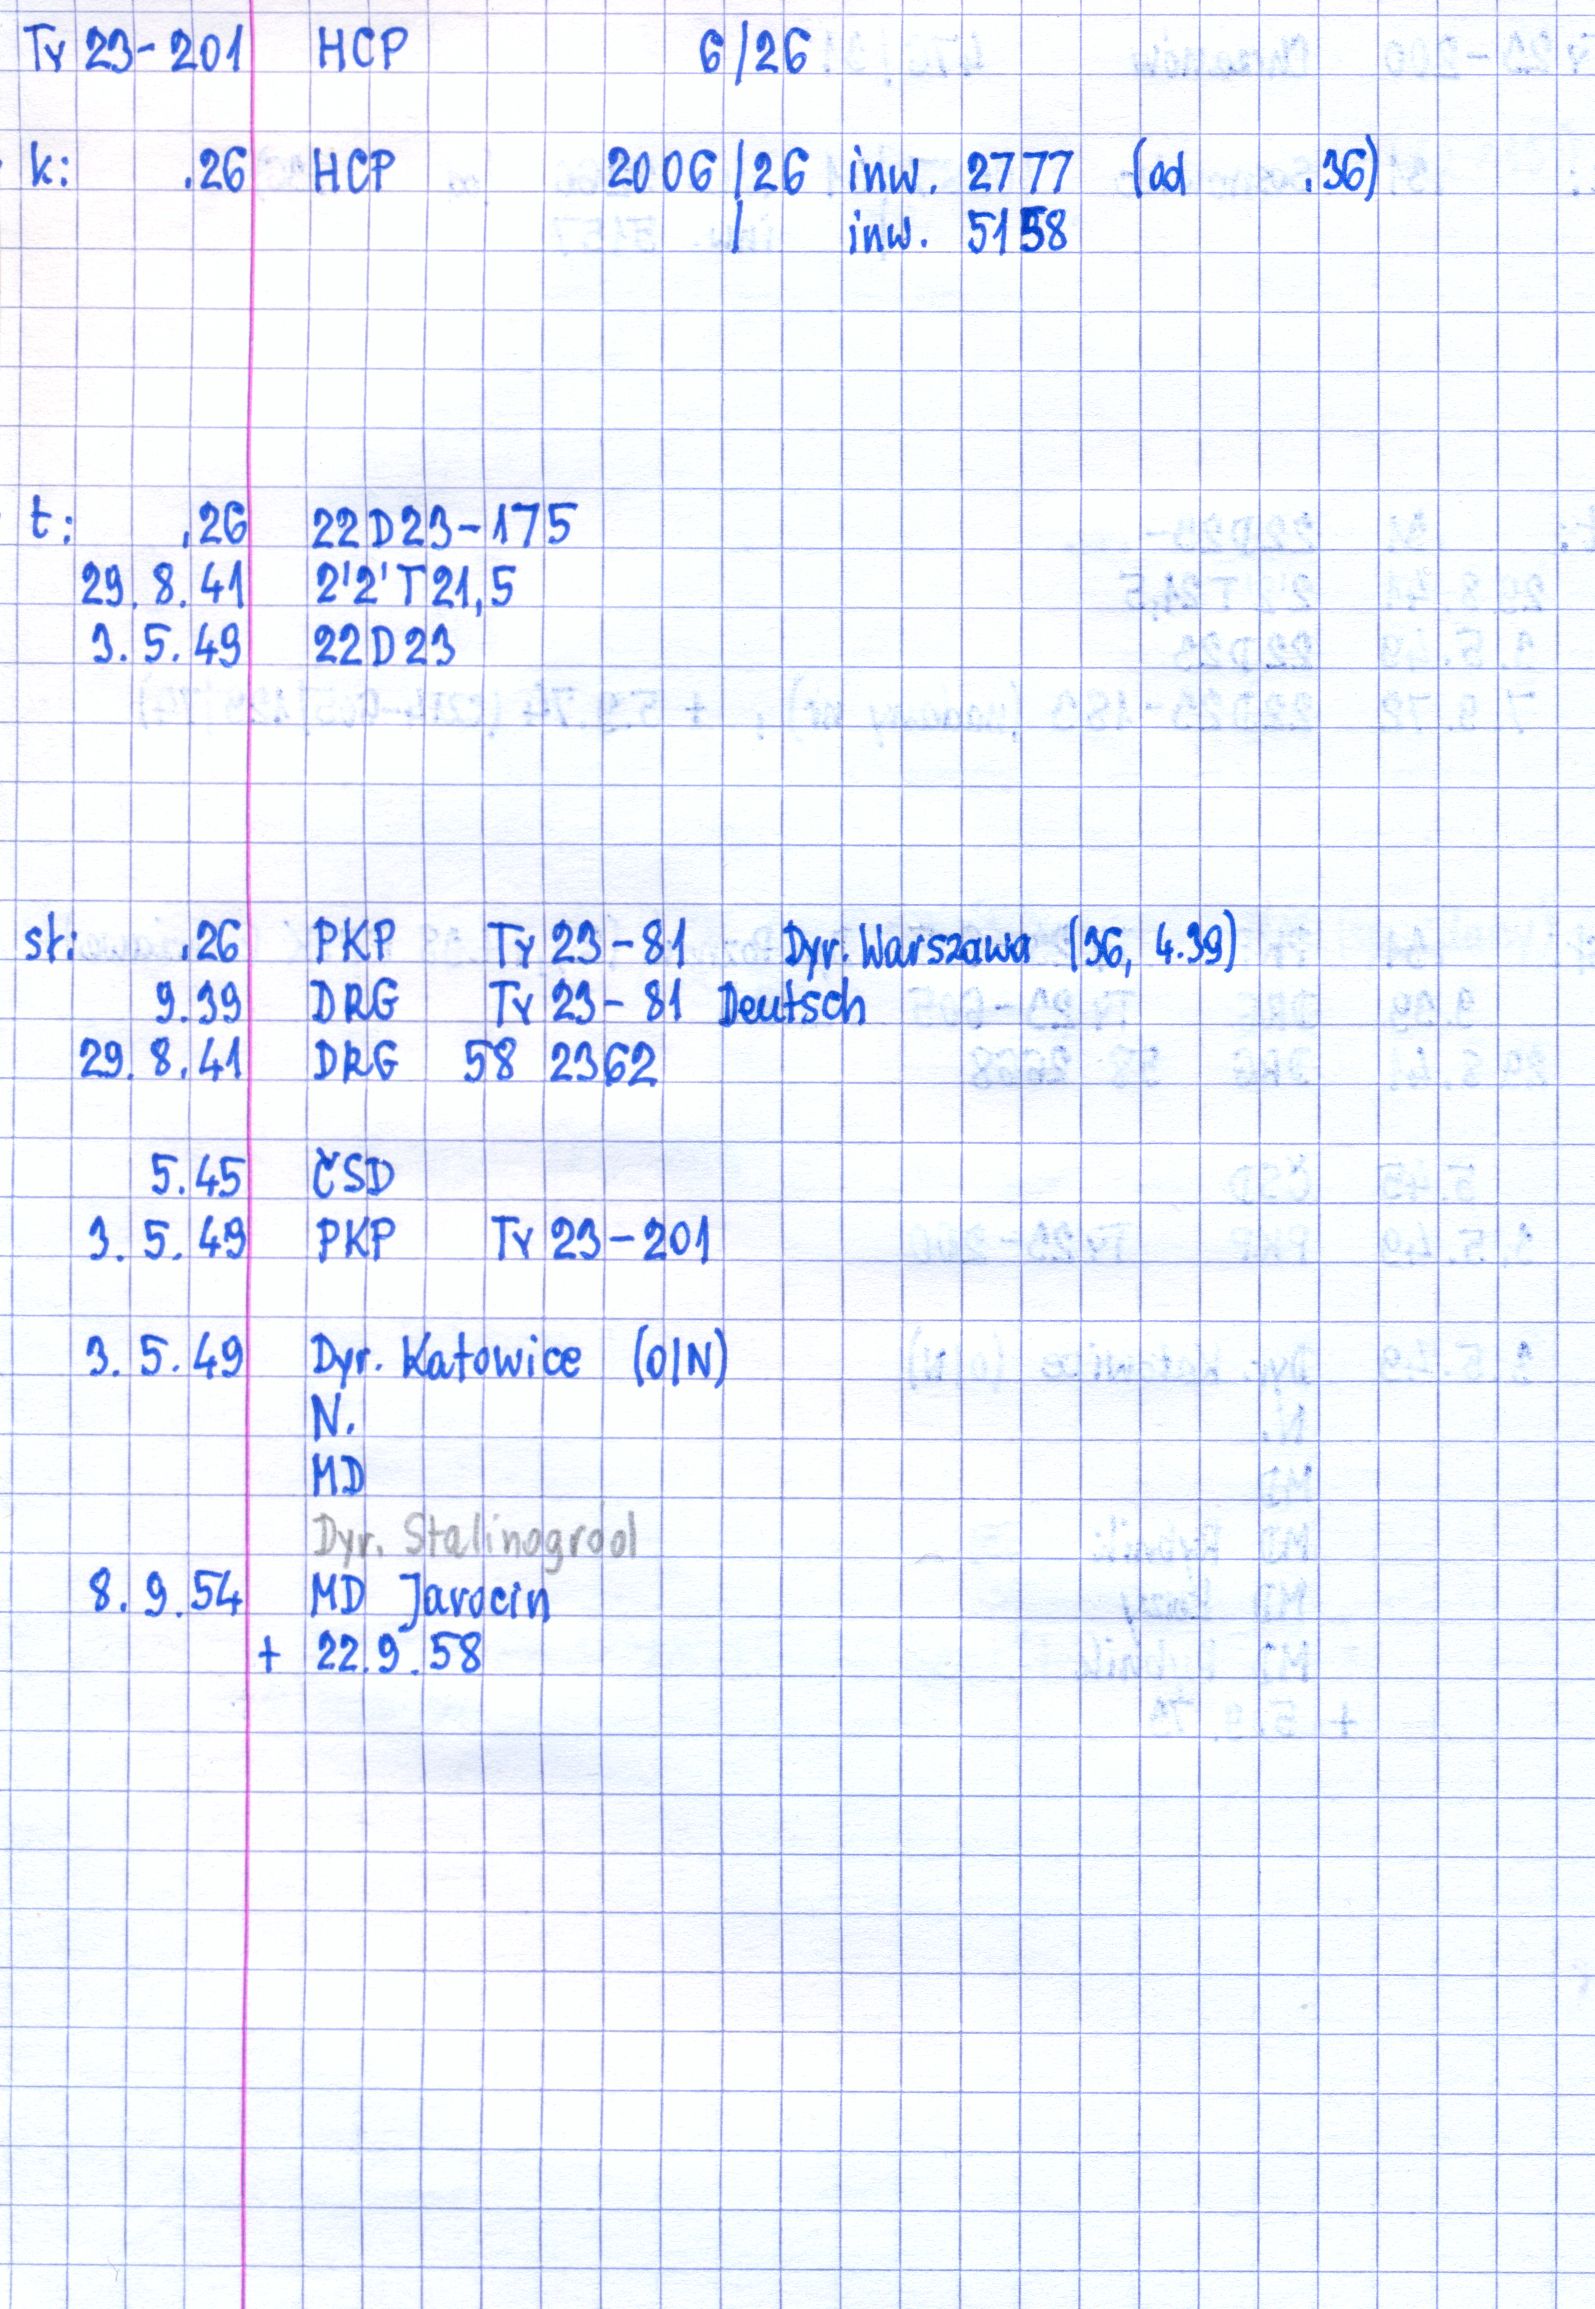 Ty 23-201 HCP 6/26
k: .26 HCP 2006/26 inw. 2777 (od .36)
/ inw. 5158
t: .26 22D23-175
29.8.41 2'2'T21,5
3.5.49 22D23
st: .26 PKP Ty 23-81 Dyr. Warszawa (36, 4.39)
9.39 DRG Ty 23-81 Deutsch
29.8.41 DRG 58 2362
5.45 ČSD
3.5.49 PKP Ty 23-201
3.5.49 Dyr. Katowice (O/N)
N.
MD
Dyr. Stalinogrod
8.9.54 MD Jarocin
+ 22.9.58